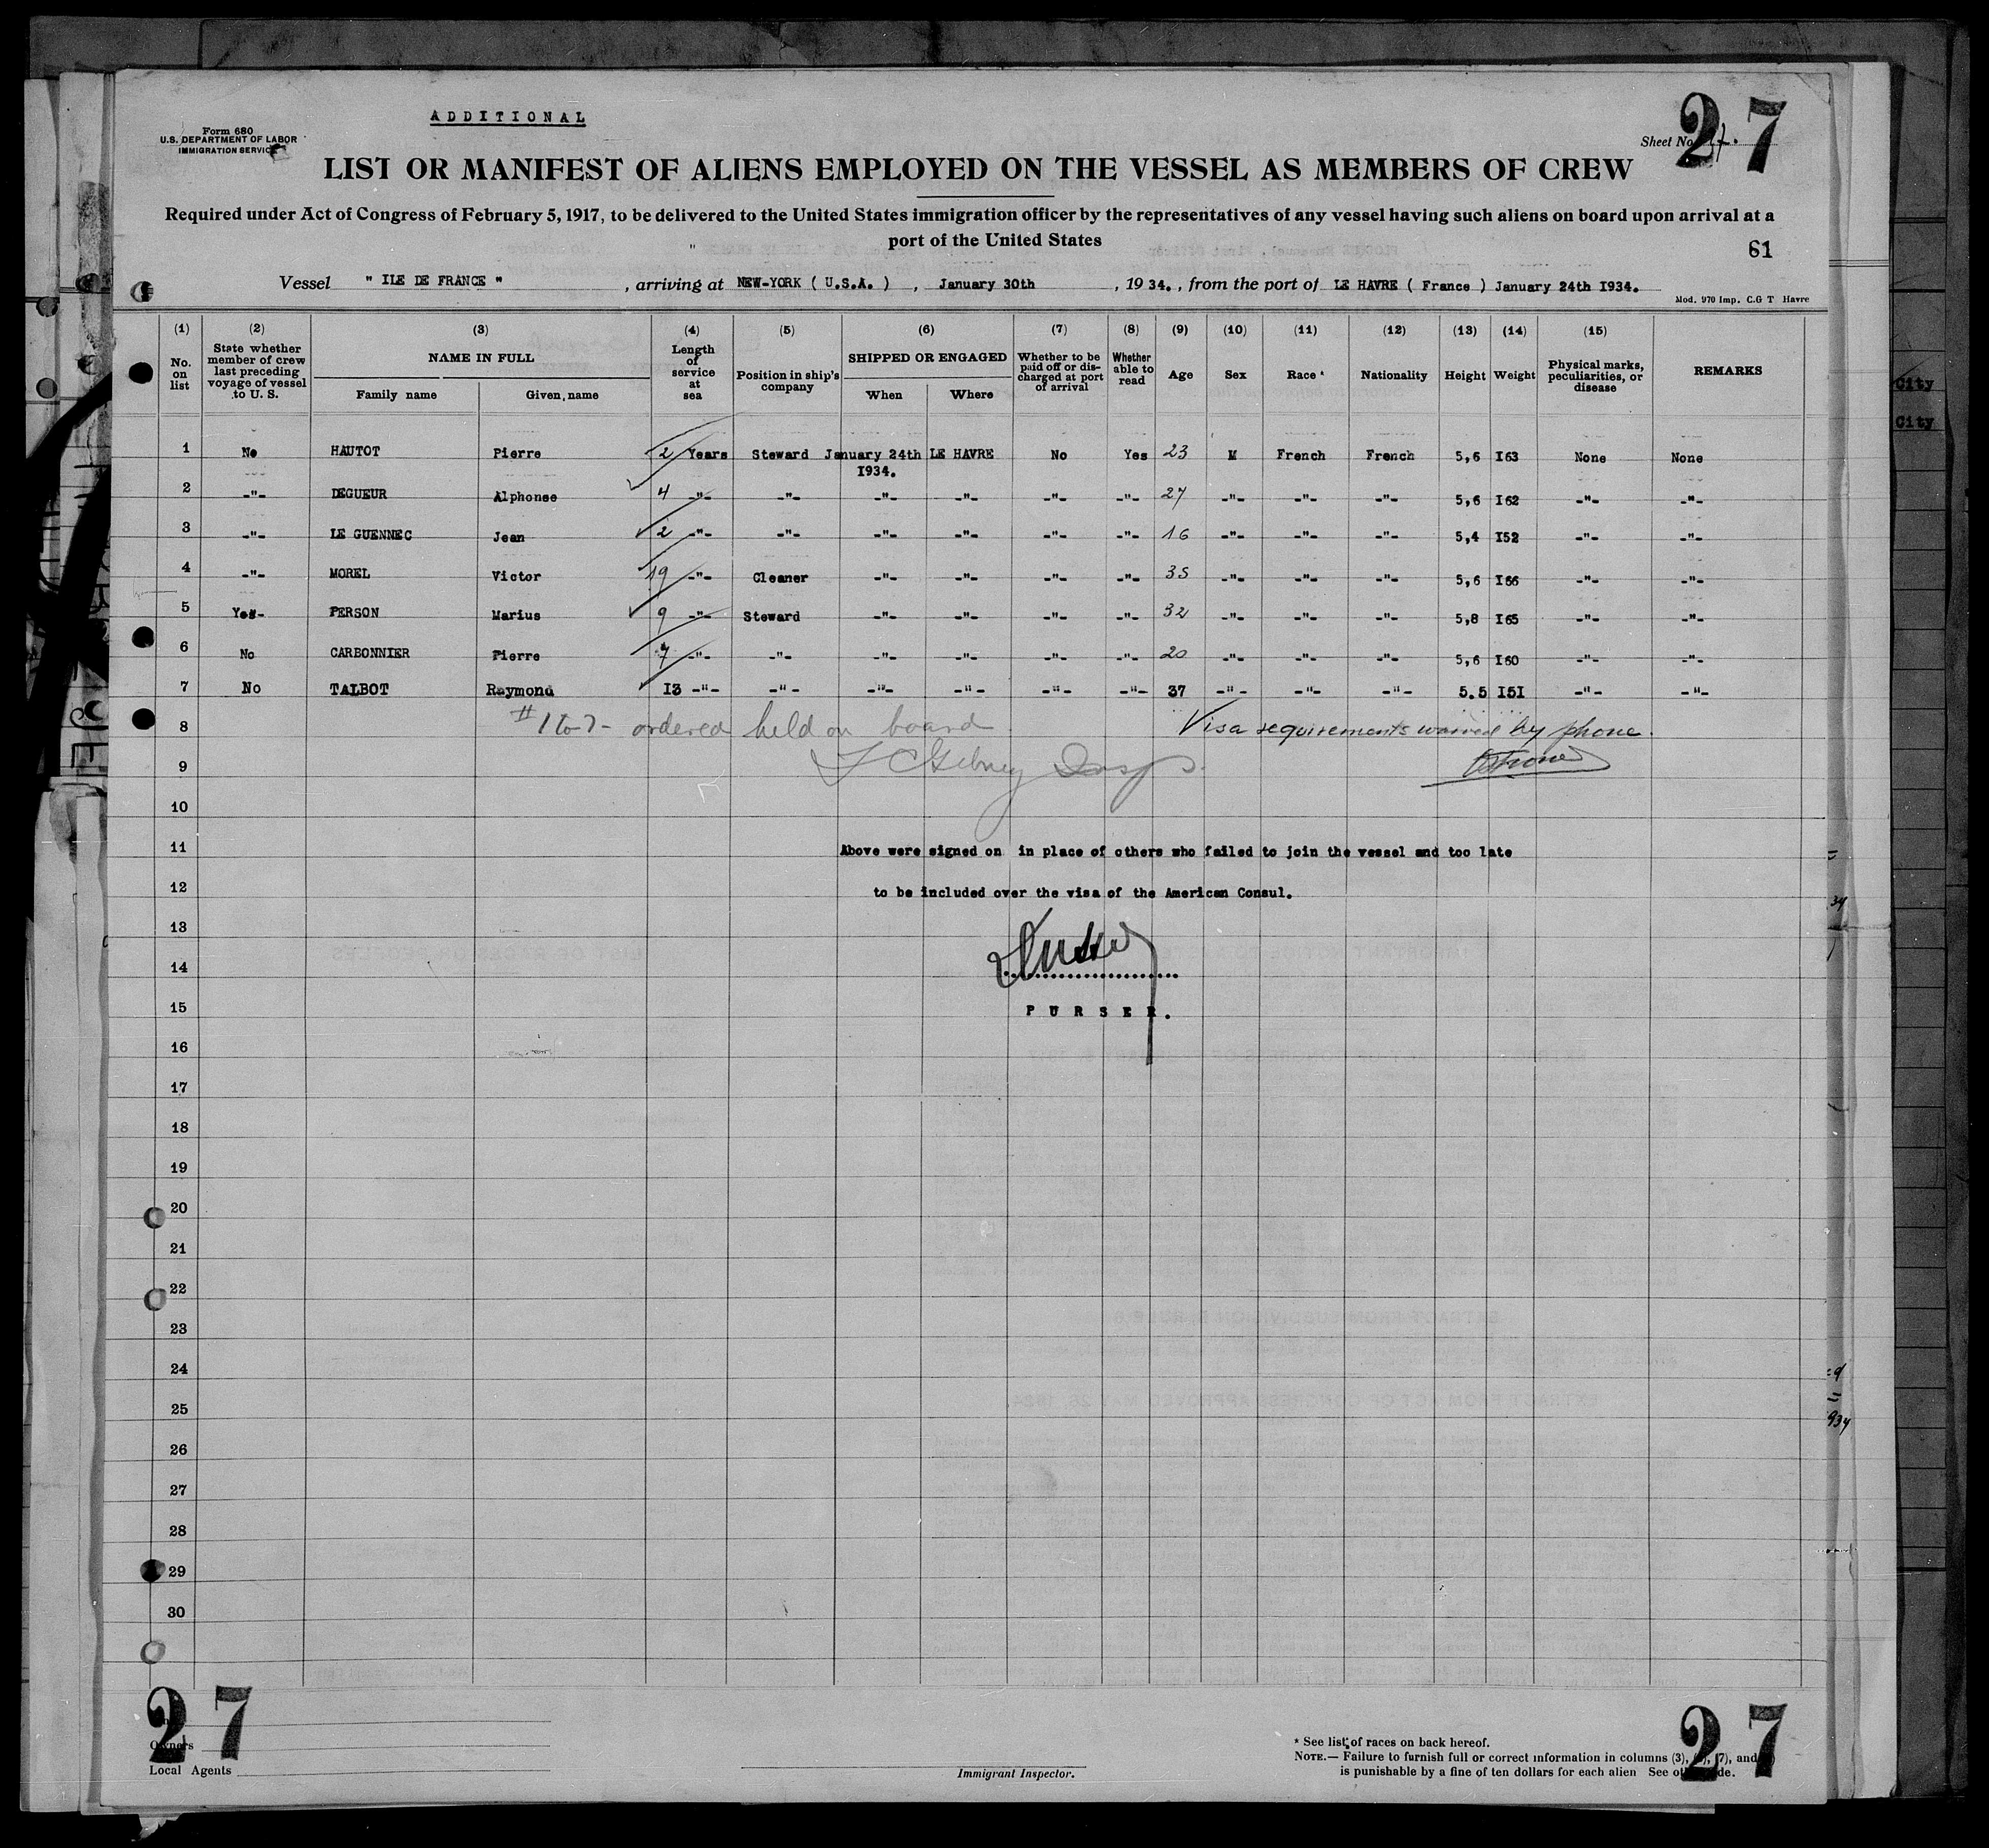 ADDITIONAL
Form 680
U.S. DEPARTMENT OF LABOR
IMMIGRATION SERVICE
Sheet No.
27
LIST OR MANIFEST OF ALIENS EMPLOYED ON THE VESSEL AS MEMBERS OF CREW
Required under Act of Congress of February 5, 1917, to be delivered to the United States immigration officer by the representatives of any vessel having such aliens on board upon arrival at a
port of the United States
61
Vessel " ILE DE FRANCE " , arriving at NEW-YORK ( U.S.A. ) , January 30th , 1934. , from the port of LE HAVRE ( France ) January 24th I934.
Mod. 970 Imp. C.G T Havre
(1) (2) (3) (4) (5) (6) (7) (8) (9) (10) (11) (12) (13) (14) (15)
No. on list State whether member of crew last preceding voyage of vessel to U. S. NAME IN FULL Family name Given name Length of service at sea Position in ship's company SHIPPED OR ENGAGED When Where Whether to be paid off or discharged at port of arrival Whether able to read Age Sex Race * Nationality Height Weight Physical marks, peculiarities, or disease REMARKS
1 No HAUTOT Pierre 2 Years Steward January 24th LE HAVRE No Yes 23 M French French 5,6 I63 None None
I934.
2 -"- DEGUEUR Alphonse 4 -"- -"- -"- -"- -"- -"- 27 -"- -"- -"- 5,6 I62 -"- -"-
3 -"- LE GUENNEC Jean 2 -"- -"- -"- -"- -"- -"- 16 -"- -"- -"- 5,4 I52 -"- -"-
4 -"- MOREL Victor 19 -"- Cleaner -"- -"- -"- -"- 35 -"- -"- -"- 5,6 I66 -"- -"-
5 Yes- PERSON Marius 9 -"- Steward -"- -"- -"- -"- 32 -"- -"- -"- 5,8 I65 -"- -"-
6 No CARBONNIER Pierre 7 -"- -"- -"- -"- -"- -"- 20 -"- -"- -"- 5,6 I60 -"- -"-
7 No TALBOT Raymond I3 -"- -"- -"- -"- -"- -"- 37 -"- -"- -"- 5.5 I5I -"- -"-
8 # 1 to 7 - ordered held on board Visa requirements waived by phone.
9
10
11 Above were signed on in place of others who failed to join the vessel and too late
12 to be included over the visa of the American Consul.
13
14
15 PURSER.
16
17
18
19
20
21
22
23
24
25
26
27
28
29
30
27
27
Owners
Local Agents
Immigrant Inspector.
* See list of races on back hereof.
NOTE.— Failure to furnish full or correct information in columns (3), (7), and
is punishable by a fine of ten dollars for each alien See
City
City
34
934